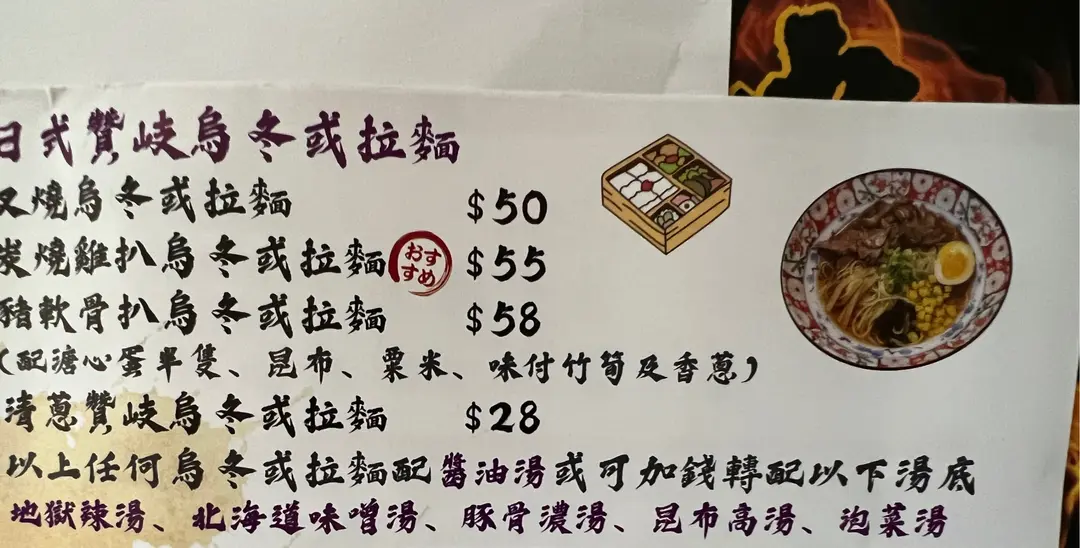 日式贊岐烏冬或拉麵
叉燒烏冬或拉麵 $50
炭燒雞扒烏冬或拉麵 おすすめ $55
豬軟骨扒烏冬或拉麵 $58
(配溏心蛋半隻、昆布、粟米、味付竹筍及香蔥)
清蔥贊岐烏冬或拉麵 $28
以上任何烏冬或拉麵配醬油湯或可加錢轉配以下湯底
地獄辣湯、北海道味噌湯、豚骨濃湯、昆布高湯、泡菜湯